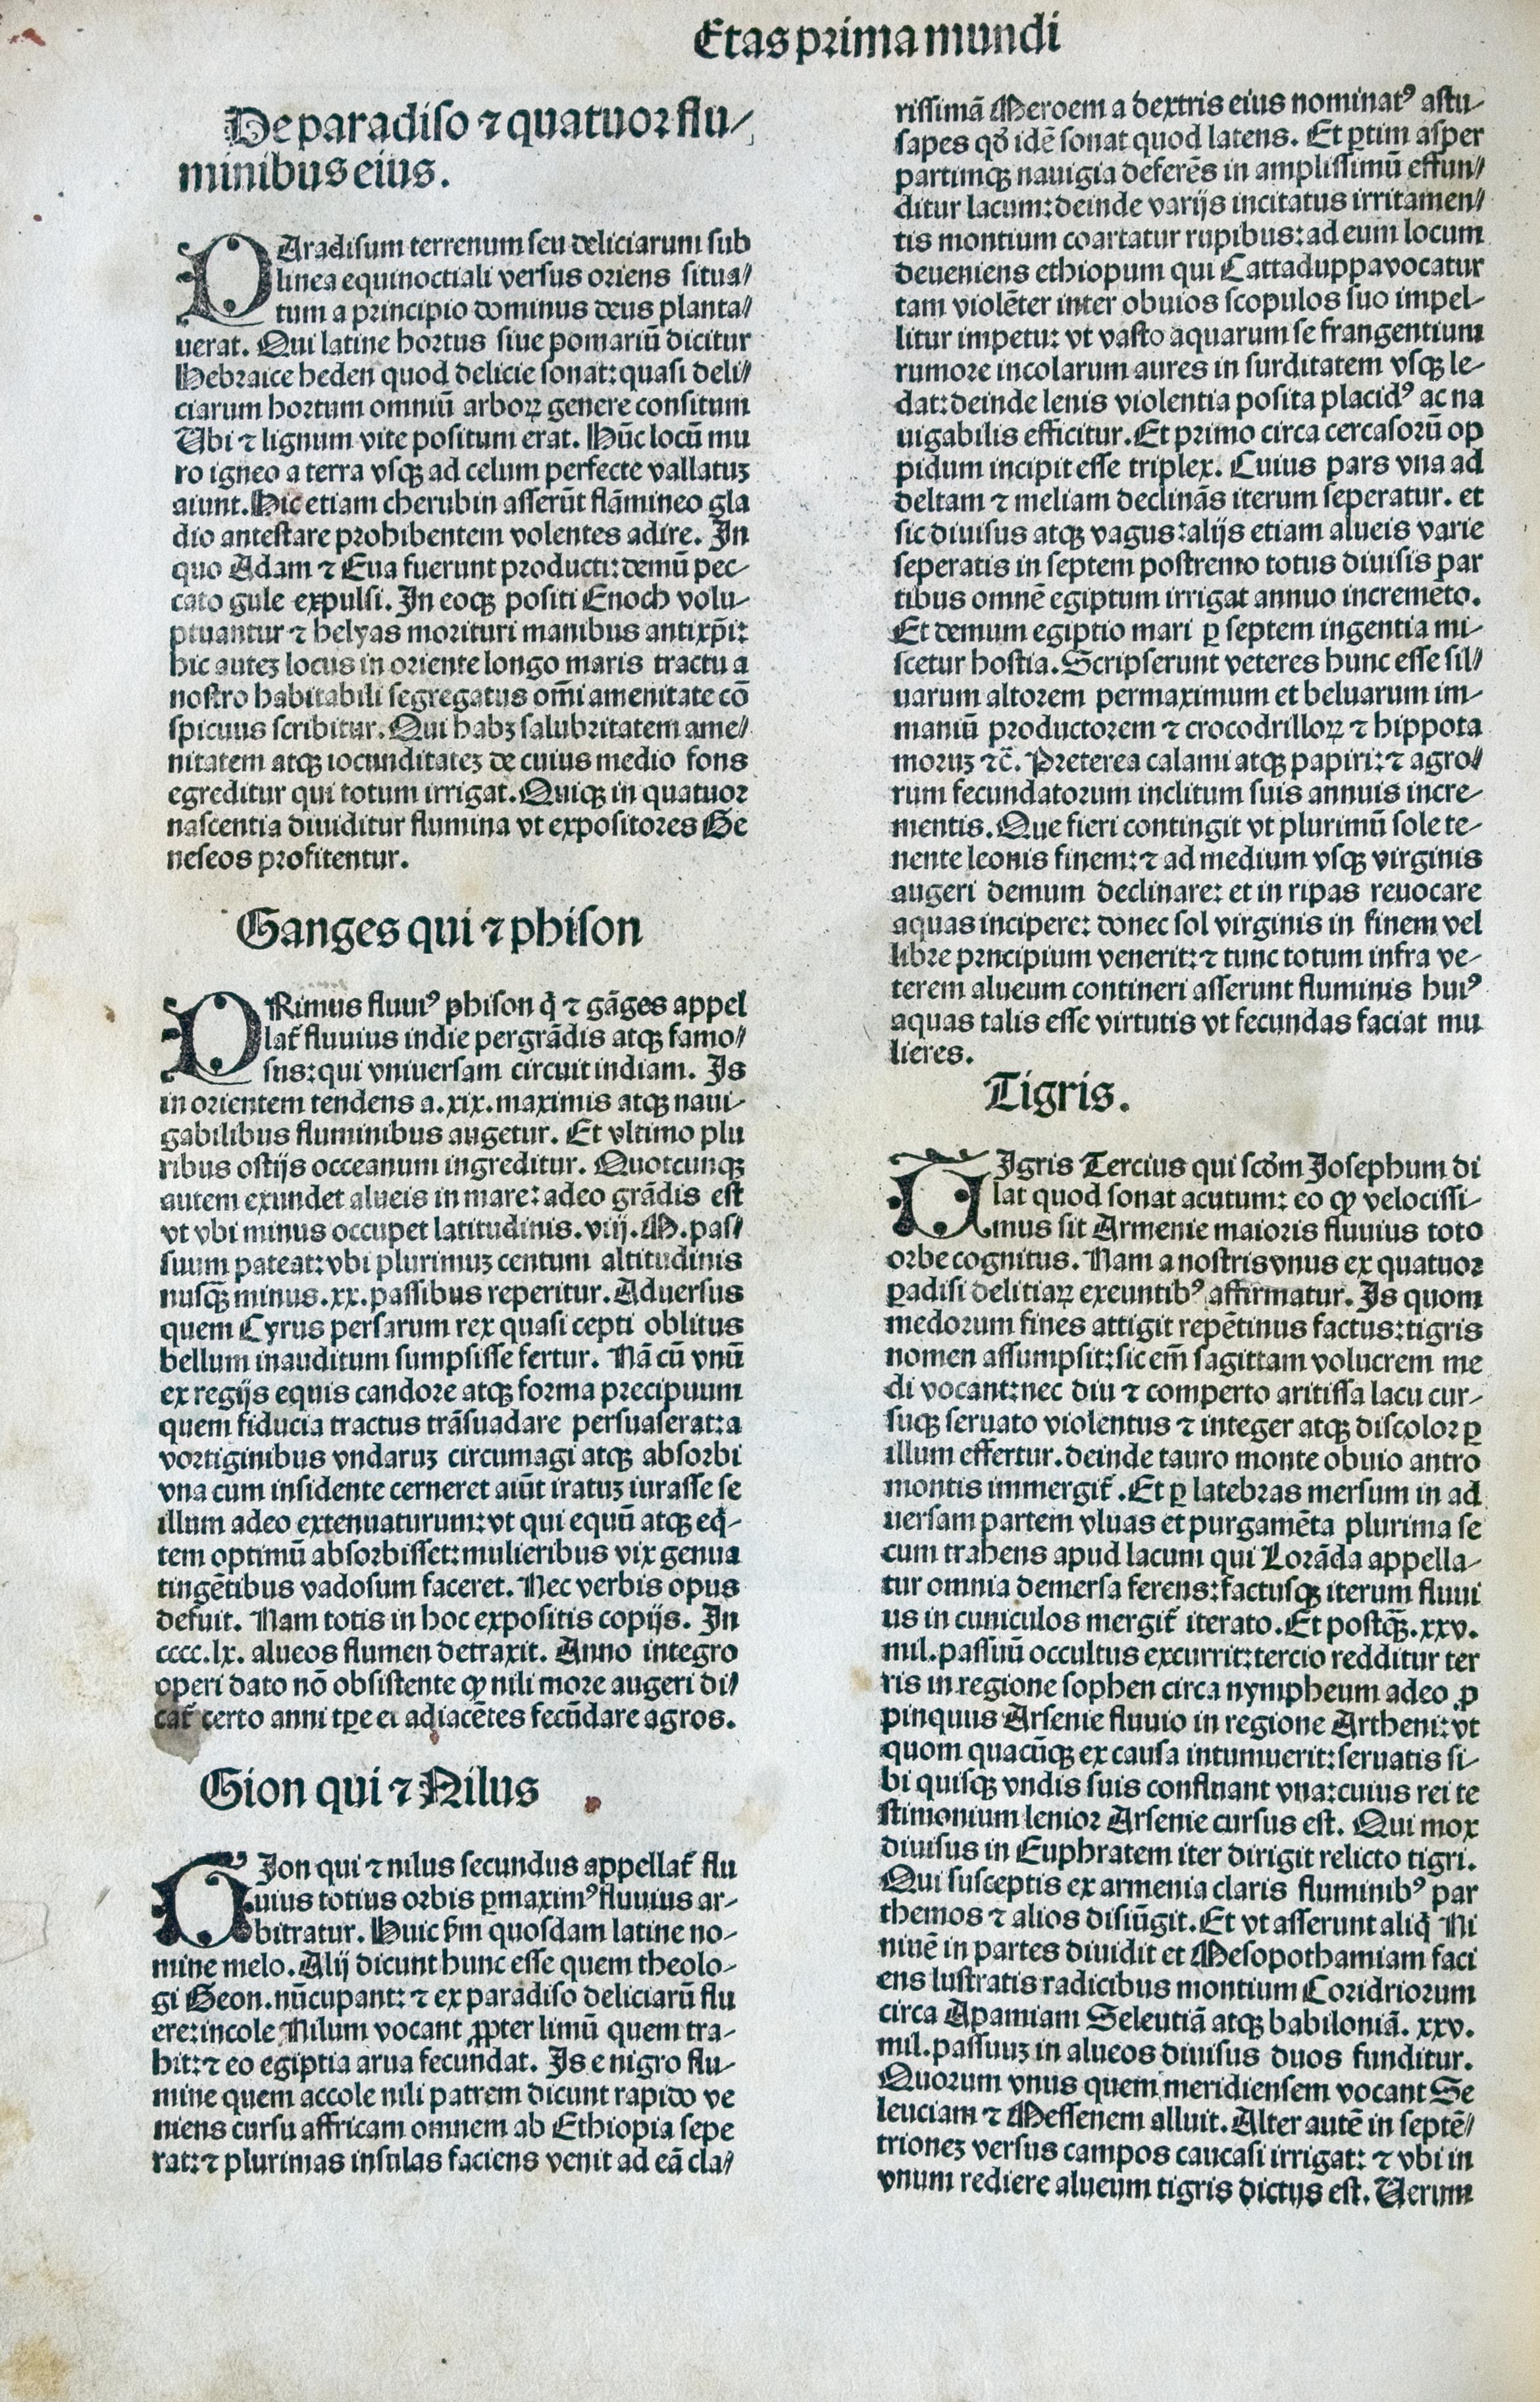 Etas prima mundi
De paradiso ⁊ quatuor flu-
minibus eius.
PAradisum terrenum seu deliciarum sub
linea equinoctiali versus oriens situa-
tum a principio dominus deus planta-
uerat. Qui latine hortus siue pomariū dicitur
Hebraice heden quod delicie sonat: quasi deli-
ciarum hortum omniū arboꝝ genere consitum
Ubi ⁊ lignum vite positum erat. Hūc locū mu
ro igneo a terra vsqꝫ ad celum perfecte vallatuꝫ
aiunt. Hic etiam cherubin asserūt flāmineo gla
dio antestare prohibentem volentes adire. In
quo Adam ⁊ Eua fuerunt producti: demū pec-
cato gule expulsi. In eoqꝫ positi Enoch volu-
ptuantur ⁊ helyas morituri manibus antixp̄i:
hic auteꝫ locus in oriente longo maris tractu a
nostro habitabili segregatus om̄i amenitate cō
spicuus scribitur. Qui habꝫ salubritatem ame-
nitatem atqꝫ iocunditateꝫ de cuius medio fons
egreditur qui totum irrigat. Quiqꝫ in quatuor
nascentia diuiditur flumina vt expositores Ge
neseos profitentur.
Ganges qui ⁊ phison
PRimus fluuiꝰ phison q̄ ⁊ gāges appel
lat̄ fluuius indie pergrādis atqꝫ famo-
sus: qui vniuersam circuit indiam. Is
in orientem tendens a. xix. maximis atqꝫ naui-
gabilibus fluminibus augetur. Et vltimo plu
ribus ostijs occeanum ingreditur. Quotcunqꝫ
autem exundet alueis in mare: adeo grādis est
vt vbi minus occupet latitudinis. viij. M. pas-
suum pateat: vbi plurimuꝫ centum altitudinis
nusqꝫ minus. xx. passibus reperitur. Aduersus
quem Cyrus persarum rex quasi cepti oblitus
bellum inauditum sumpsisse fertur. Nā cū vnū
ex regijs equis candore atqꝫ forma precipuum
quem fiducia tractus trāsuadare persuaserat: a
vortiginibus vndaruꝫ circumagi atqꝫ absorbi
vna cum insidente cerneret aiūt iratuꝫ iurasse se
illum adeo extenuaturum: vt qui equū atqꝫ eq̄-
tem optimū absorbisset: mulieribus vix genua
tingētibus vadosum faceret. Nec verbis opus
defuit. Nam totis in hoc expositis copijs. In
cccc. lx. alueos flumen detraxit. Anno integro
operi dato nō obsistente ꝙ nili more augeri di-
cat̄ certo anni tꝑe ei adiacētes fecūdare agros.
Gion qui ⁊ Nilus
GIon qui ⁊ nilus secundus appellat̄ flu
uius totius orbis ꝑmaximꝰ fluuius ar-
bitratur. Huic ẜm quosdam latine no-
mine melo. Alij dicunt hunc esse quem theolo-
gi Geon. nūcupant: ⁊ ex paradiso deliciarū flu
ere: incole Nilum vocant ꝓpter limū quem tra-
hit: ⁊ eo egiptia arua fecundat. Is e nigro flu-
mine quem accole nili patrem dicunt rapido ve
niens cursu affricam omnem ab Ethiopia sepe
rat: ⁊ plurimas insulas faciens venit ad eā cla-
rissimā Meroem a dextris eius nominatꝰ astu-
sapes qd̄ idē sonat quod latens. Et ꝑtim asper
partimqꝫ nauigia deferēs in amplissimū effun-
ditur lacum: deinde varijs incitatus irritamen-
tis montium coartatur rupibus: ad eum locum
deueniens ethiopum qui Cattaduppa vocatur
tam violēter inter obuios scopulos suo impel-
litur impetu: vt vasto aquarum se frangentium
rumore incolarum aures in surditatem vsqꝫ le-
dat: deinde lenis violentia posita placidꝰ ac na
uigabilis efficitur. Et primo circa cercasorū op
pidum incipit esse triplex. Cuius pars vna ad
deltam ⁊ meliam declinās iterum seperatur. et
sic diuisus atqꝫ vagus: alijs etiam alueis varie
seperatis in septem postremo totus diuisis par
tibus omnē egiptum irrigat annuo incremeto.
Et demum egiptio mari ꝑ septem ingentia mi-
scetur hostia. Scripserunt veteres hunc esse sil-
uarum altorem permaximum et beluarum im-
maniū productorem ⁊ crocodrilloꝝ ⁊ hippota
moruꝫ ⁊c̄. Preterea calami atqꝫ papiri: ⁊ agro-
rum fecundatorum inclitum suis annuis incre-
mentis. Que fieri contingit vt plurimū sole te-
nente leonis finem: ⁊ ad medium vsqꝫ virginis
augeri demum declinare: et in ripas reuocare
aquas incipere: donec sol virginis in finem vel
libre principium venerit: ⁊ tunc totum infra ve-
terem alueum contineri asserunt fluminis huiꝰ
aquas talis esse virtutis vt fecundas faciat mu
lieres.
Tigris.
TIgris Tercius qui scd̄m Josephum di
lat quod sonat acutum: eo ꝙ velocissi-
mus sit Armenie maioris fluuius toto
orbe cognitus. Nam a nostris vnus ex quatuor
ꝑadisi delitiaꝝ exeuntibꝰ affirmatur. Is quom
medorum fines attigit repētinus factus: tigris
nomen assumpsit: sic em̄ sagittam volucrem me
di vocant: nec diu ⁊ comperto aritissa lacu cur-
suqꝫ seruato violentus ⁊ integer atqꝫ discolor ꝑ
illum effertur. deinde tauro monte obuio antro
montis immergit̄. Et ꝑ latebras mersum in ad
uersam partem vluas et purgamēta plurima se
cum trahens apud lacum qui Lorāda appella-
tur omnia demersa ferens: factusqꝫ iterum fluui
us in cuniculos mergit̄ iterato. Et postqꝫ̄. xxv.
mil. passuū occultus excurrit: tercio redditur ter
ris in regione sophen circa nympheum adeo ꝓ
pinquus Arsenie fluuio in regione Artheni: vt
quom quacūqꝫ ex causa intumuerit: seruatis si-
bi quisqꝫ vndis suis confluant vna: cuius rei te
stimonium lenior Arsenie cursus est. Qui mox
diuisus in Euphratem iter dirigit relicto tigri.
Qui susceptis ex armenia claris fluminibꝰ par
themos ⁊ alios disiūgit. Et vt asserunt aliq̄ Ni
niuē in partes diuidit et Mesopothamiam faci
ens lustratis radicibus montium Coridriorum
circa Apamiam Seleutiā atqꝫ babiloniā. xxv.
mil. passuuꝫ in alueos diuisus duos funditur.
Quorum vnus quem meridiensem vocant Se
leuciam ⁊ Messenem alluit. Alter autē in septē-
trioneꝫ versus campos caucasi irrigat: ⁊ vbi in
vnum rediere alueum tigris dictus est. Uerum